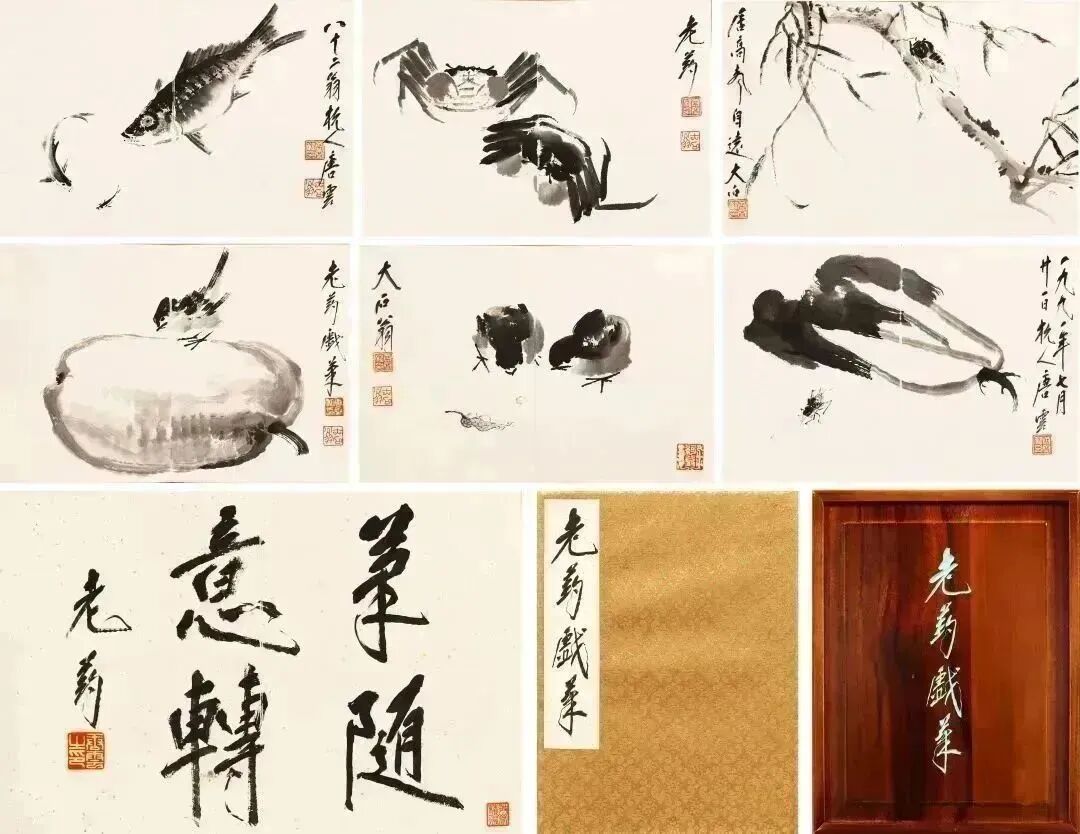 八十二翁杭人唐雲
老葯
居高声自遠大石
老葯戲筆
大石翁
一九九一年七月
廿一日杭人唐雲
筆隨
意轉
老葯
老葯戲筆
老葯戲筆